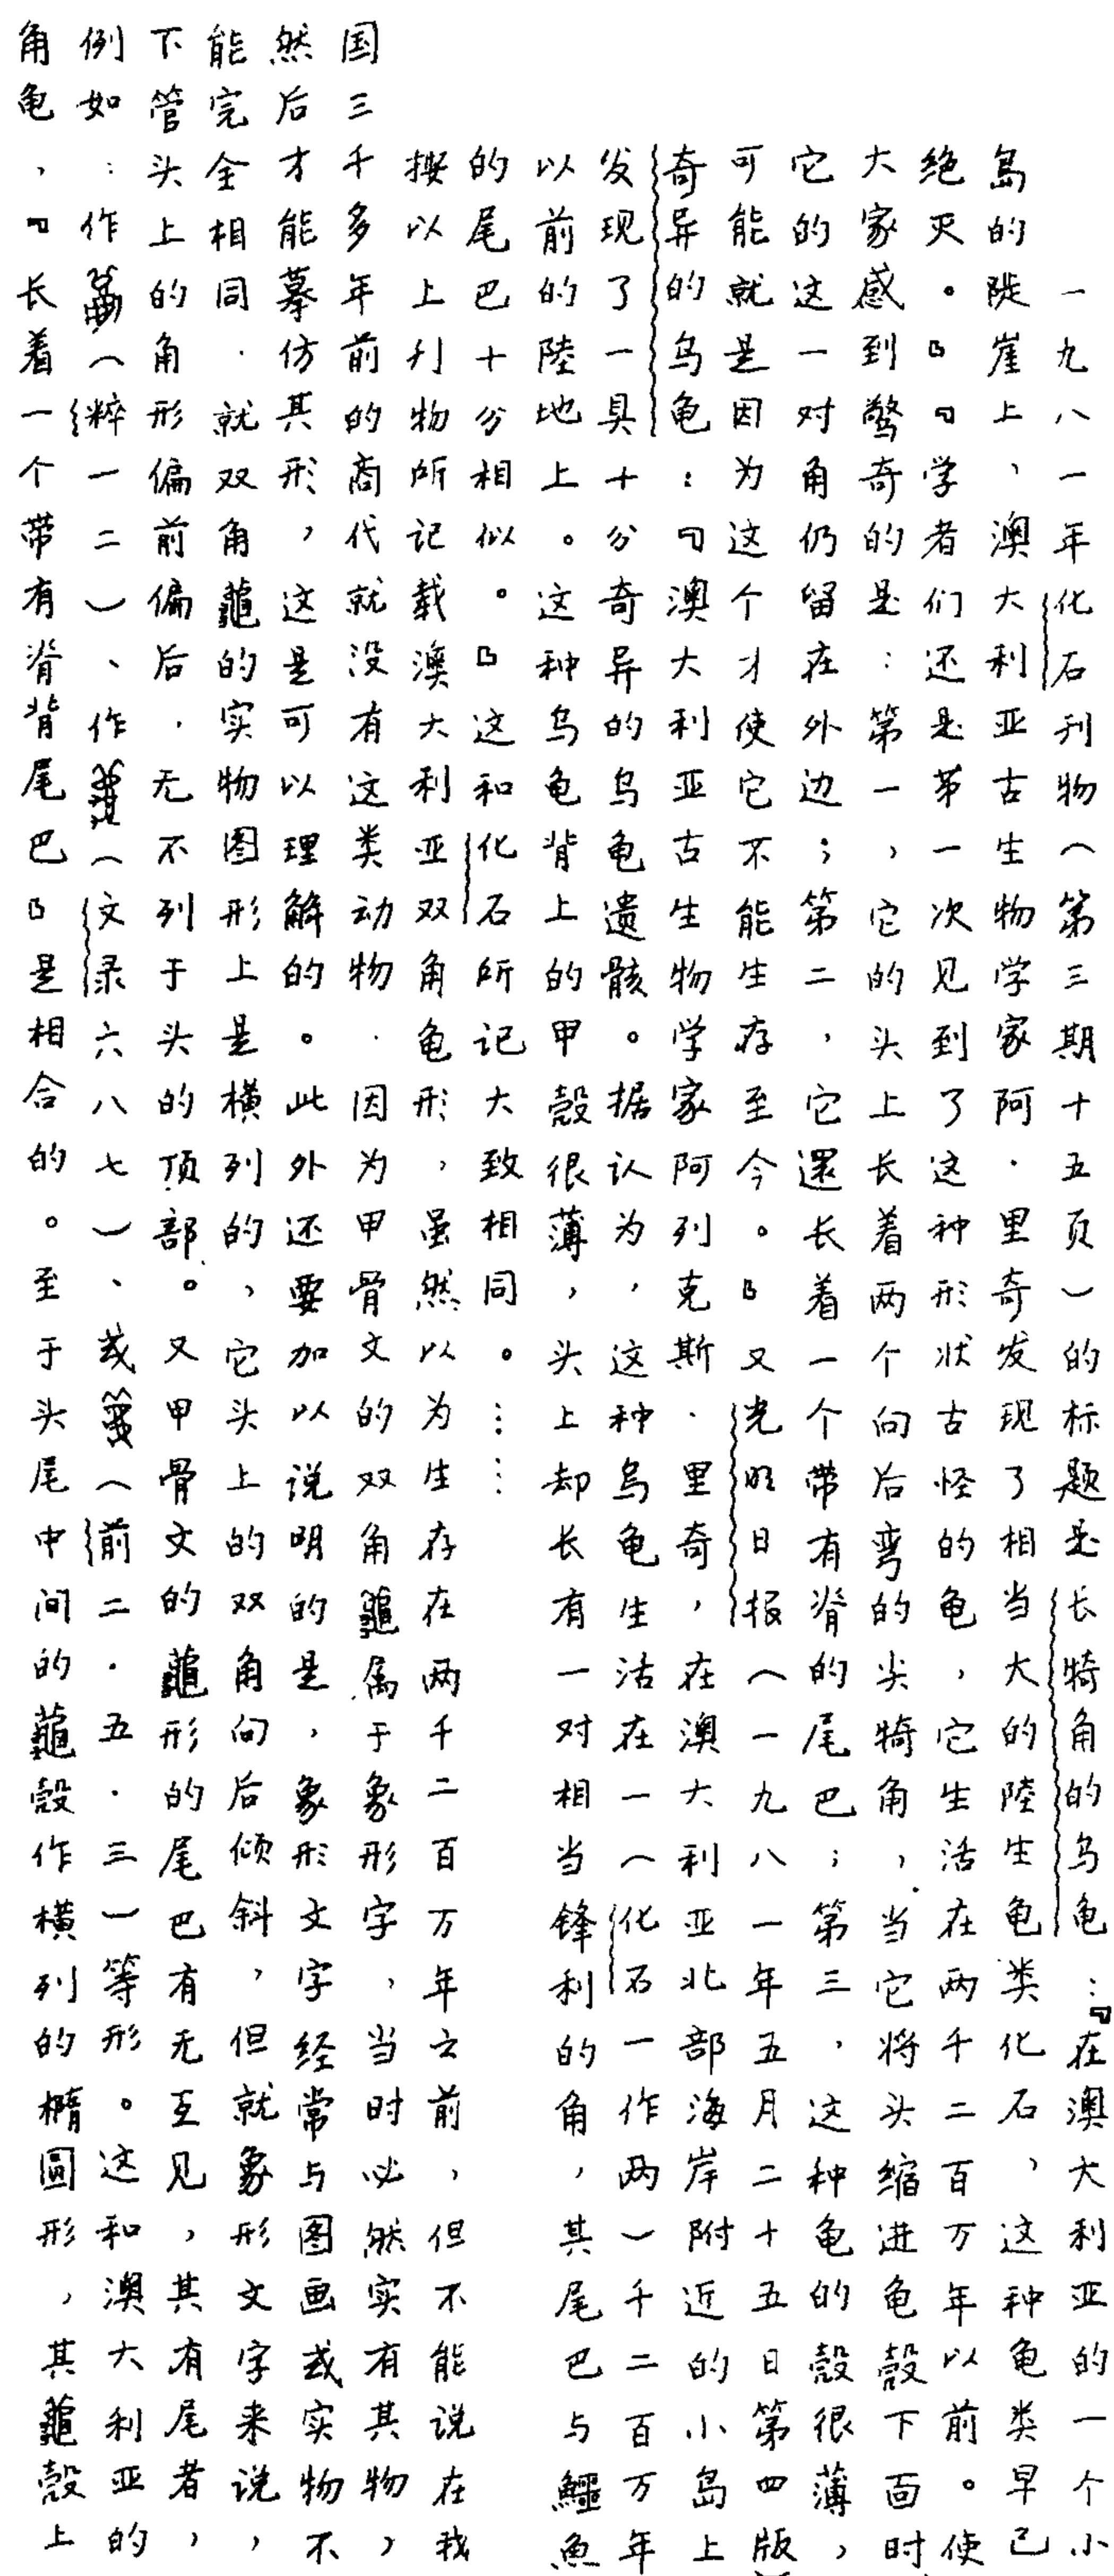 一九八一年化石刊物（第三期十五页）的标题是长犄角的乌龟：『在澳大利亚的一个小
岛的陡崖上，澳大利亚古生物学家阿·里奇发现了相当大的陸生龟类化石，这种龟类早已
绝灭。』『学者们还是第一次见到了这种形状古怪的龟，它生活在两千二百万年以前。使
大家感到驚奇的是：第一，它的头上长着两个向后弯的尖犄角，当它将头缩进龟殼下面时
它的这一对角仍留在外边；第二，它還长着一个带有脊的尾巴；第三，这种龟的殼很薄，
可能就是因为这个才使它不能生存至今。』又光明日报（一九八一年五月二十五日第四版
奇异的乌龟：『澳大利亚古生物学家阿列克斯·里奇，在澳大利亚北部海岸附近的小岛上
发现了一具十分奇异的乌龟遗骸。据认为，这种乌龟生活在一（化石一作两）千二百万年
以前的陸地上。这种乌龟背上的甲殼很薄，头上却长有一对相当锋利的角，其尾巴与鱷魚
的尾巴十分相似。』这和化石所记大致相同。……
按以上刊物所记载澳大利亚双角龟形，虽然以为生存在两千二百万年之前，但不能说在我
国三千多年前的商代就没有这类动物．因为甲骨文的双角属于象形字，当时必然实有其物，
然后才能摹仿其形，这是可以理解的。此外还要加以说明的是，象形文字经常与图画或实物不
能完全相同．就双角的实物图形上是横列的，它头上的双角向后倾斜，但就象形文字来说，
下管头上的角形偏前偏后，无不列于头的顶部。又甲骨文的形的尾巴有无互见，其有尾者，
例如：作（粹一二）、作（文录六八七）、或（前二·五·三）等形。这和澳大利亚的
角龟，『长着一个带有脊背尾巴』是相合的。至于头尾中间的殼作横列的橢圓形，其殼上